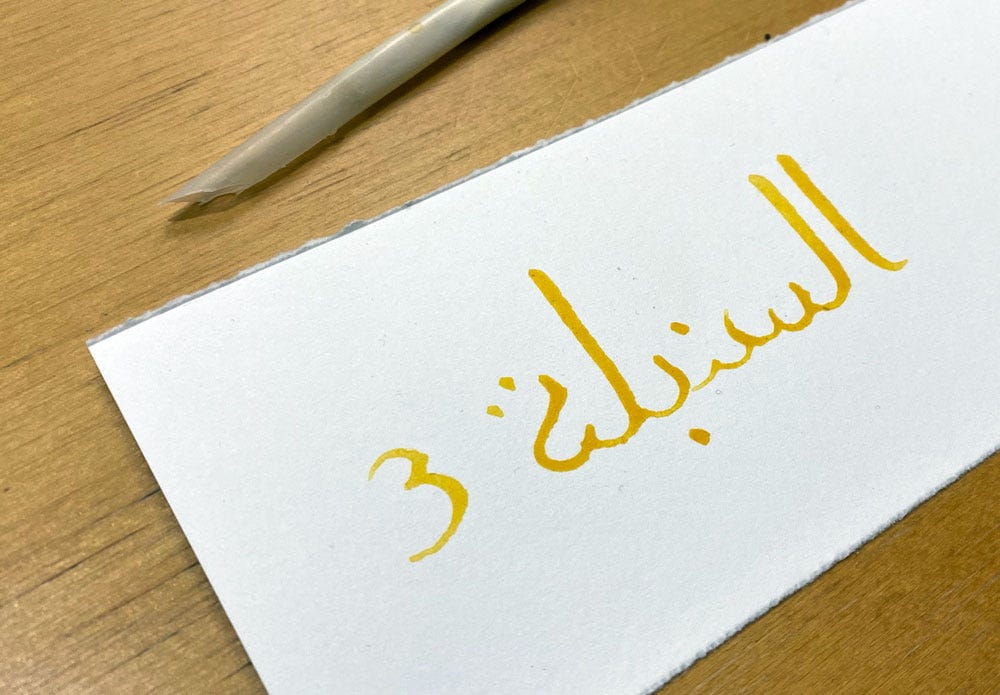 السنبلة 3